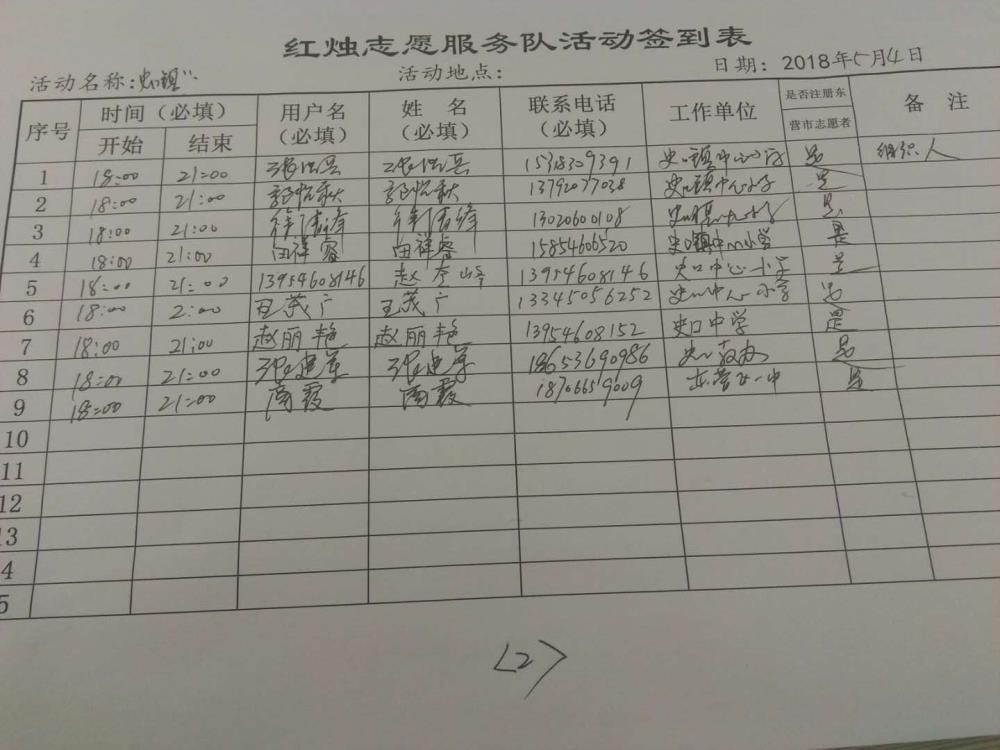 红烛志愿服务队活动签到表
活动名称: 活动地点: 日期: 2018年5月4日
序号 时间（必填） 开始 结束 用户名（必填） 姓 名（必填） 联系电话（必填） 工作单位 是否注册东营市志愿者 备 注
1 18:00 21:00 15318309391 史口镇中心小学 是 组织人
2 18:00 21:00 13792077038 史口镇中心小学 是
3 18:00 21:00 13020600108 史口镇中心小学 是
4 18:00 21:00 田祥睿 田祥睿 15854606520 史口镇中心小学 是
5 18:00 21:00 13954608146 赵 峰 13954608146 史口中心小学 是
6 18:00 2:00 王茂广 王茂广 13345056252 史口中心小学 是
7 18:00 21:00 赵丽艳 赵丽艳 13954608152 史口中学 是
8 18:00 21:00 张建军 张建军 18653690986 史口教办 是
9 18:00 21:00 高霞 高霞 18706659009 是
10
11
12
13
4
5
<2>